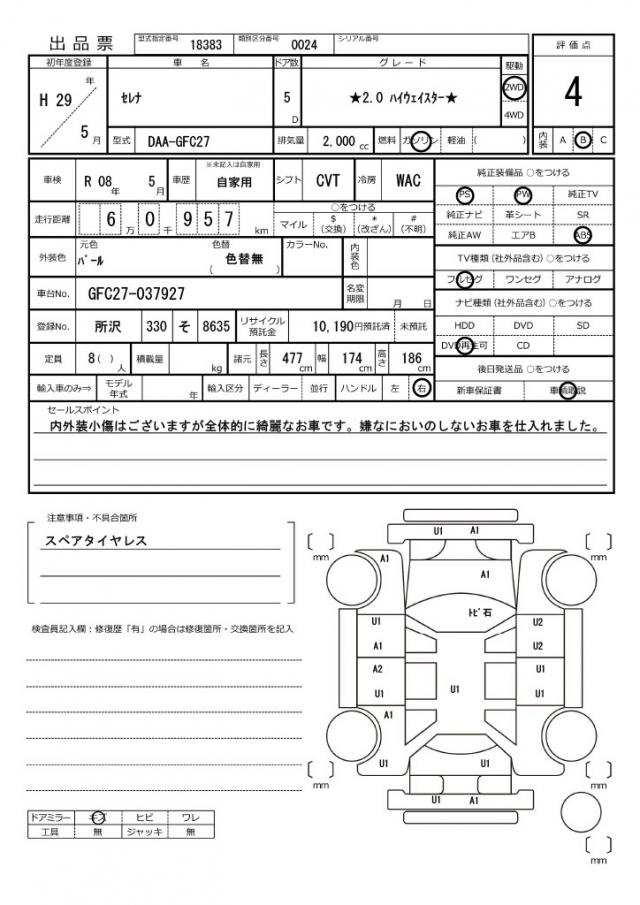 出品票 型式指定番号 18383 類別区分番号 0024 シリアル番号
初年度登録 車 名 ドア数 グレード 駆動 評価点
H 29 年 5 月 セレナ 5 D ★2.0 ハイウェイスター★ 2WD 4WD 4
型式 DAA-GFC27 排気量 2,000 cc 燃料 ガソリン 軽油 ( ) 内装 A B C
車検 R 08 年 5 月 車歴 ※未記入は自家用 自家用 シフト CVT 冷房 WAC
走行距離 6 万 0 千 9 5 7 km ○をつける
マイル $ (交換) * (改ざん) # (不明)
外装色 元色 パール 色替 色替無 ( ) カラーNo. 内装色
車台No. GFC27-037927 名変期限 月 日
登録No. 所沢 330 そ 8635 リサイクル預託金 10,190円預託済 未預託
定員 8 ( ) 人 積載量 kg 諸元 長さ 477 cm 幅 174 cm 高さ 186 cm
輸入車のみ⇒ モデル年式 年 輸入区分 ディーラー 並行 ハンドル 左 右
純正装備品 ○をつける
PS PW 純正TV
純正ナビ 革シート SR
純正AW エアB ABS
TV種類 (社外品含む) ○をつける
フルセグ ワンセグ アナログ
ナビ種類 (社外品含む) ○をつける
HDD DVD SD
DVD再生可 CD
後日発送品 ○をつける
新車保証書 車輌取説
セールスポイント
内外装小傷はございますが全体的に綺麗なお車です。嫌なにおいのしないお車を仕入れました。
注意事項・不具合箇所
スペアタイヤレス
検査員記入欄:修復歴「有」の場合は修復箇所・交換箇所を記入
ドアミラー キズ ヒビ ワレ
工具 無 ジャッキ 無
U1 A1
mm mm
A1
A1
トビ石
U1 U2
A1 U1
A2
U1 U1 U1
A1
U1 U1
U1 A1
mm mm
mm